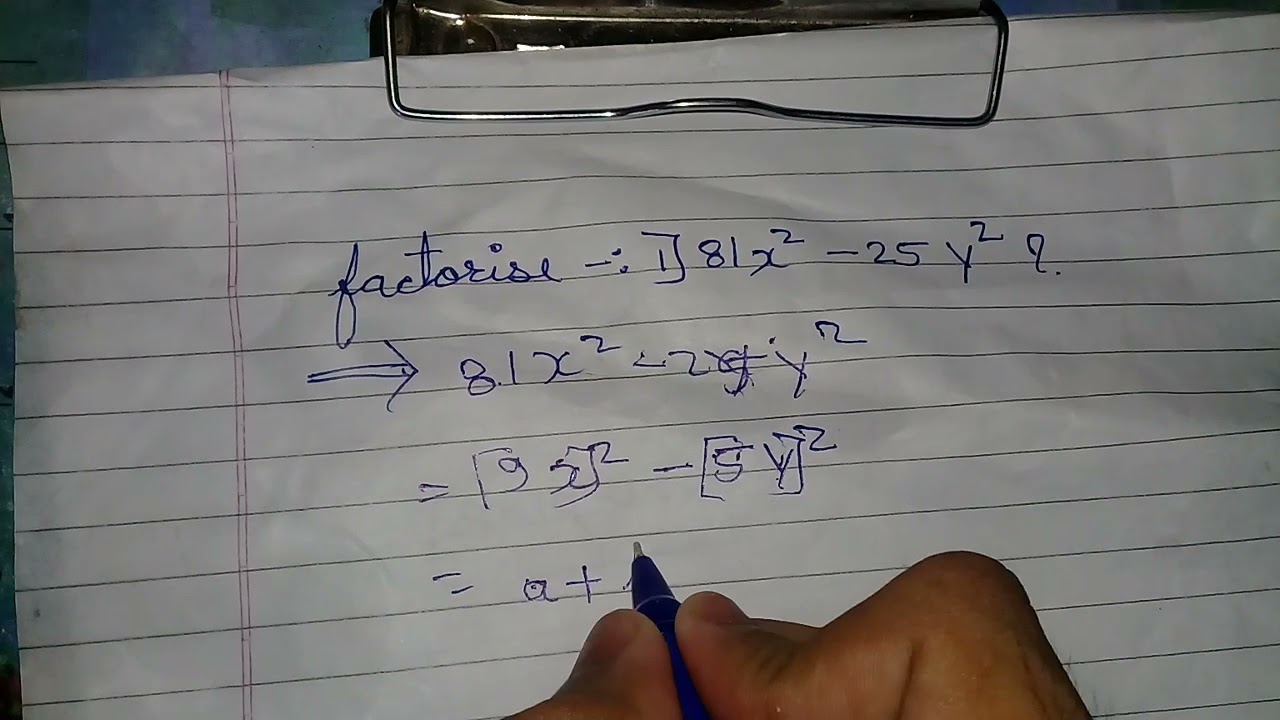 factorise -: 1] 81x² - 25y² ?
⇒ 81x² - 25y²
= [9x]² - [5y]²
= a +